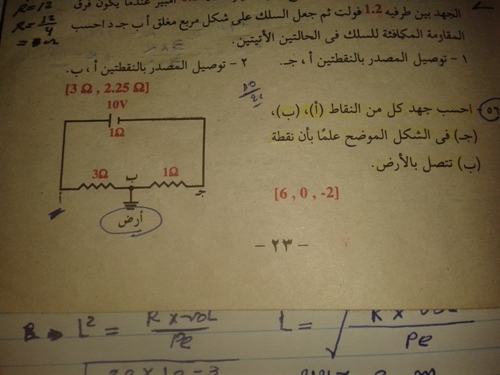 R = 12
R = 12/4
= 3 Ω
الجهد بين طرفيه 1.2 فولت ثم جعل السلك على شكل مربع مغلق أ ب جـ د احسب
المقاومة المكافئة للسلك فى الحالتين الأتيتين.
١ - توصيل المصدر بالنقطتين أ ، جـ.
٢ - توصيل المصدر بالنقطتين أ ، ب.
[3 Ω , 2.25 Ω]
٥٦ - احسب جهد كل من النقاط (أ)، (ب)،
(جـ) فى الشكل الموضح علمًا بأن نقطة
(ب) تتصل بالأرض.
[6 , 0 , -2]
10V
1Ω
3Ω
ب
1Ω
أ
جـ
أرض
- ٢٣ -
L² = R x vol / Pe
L = √ R x vol / Pe